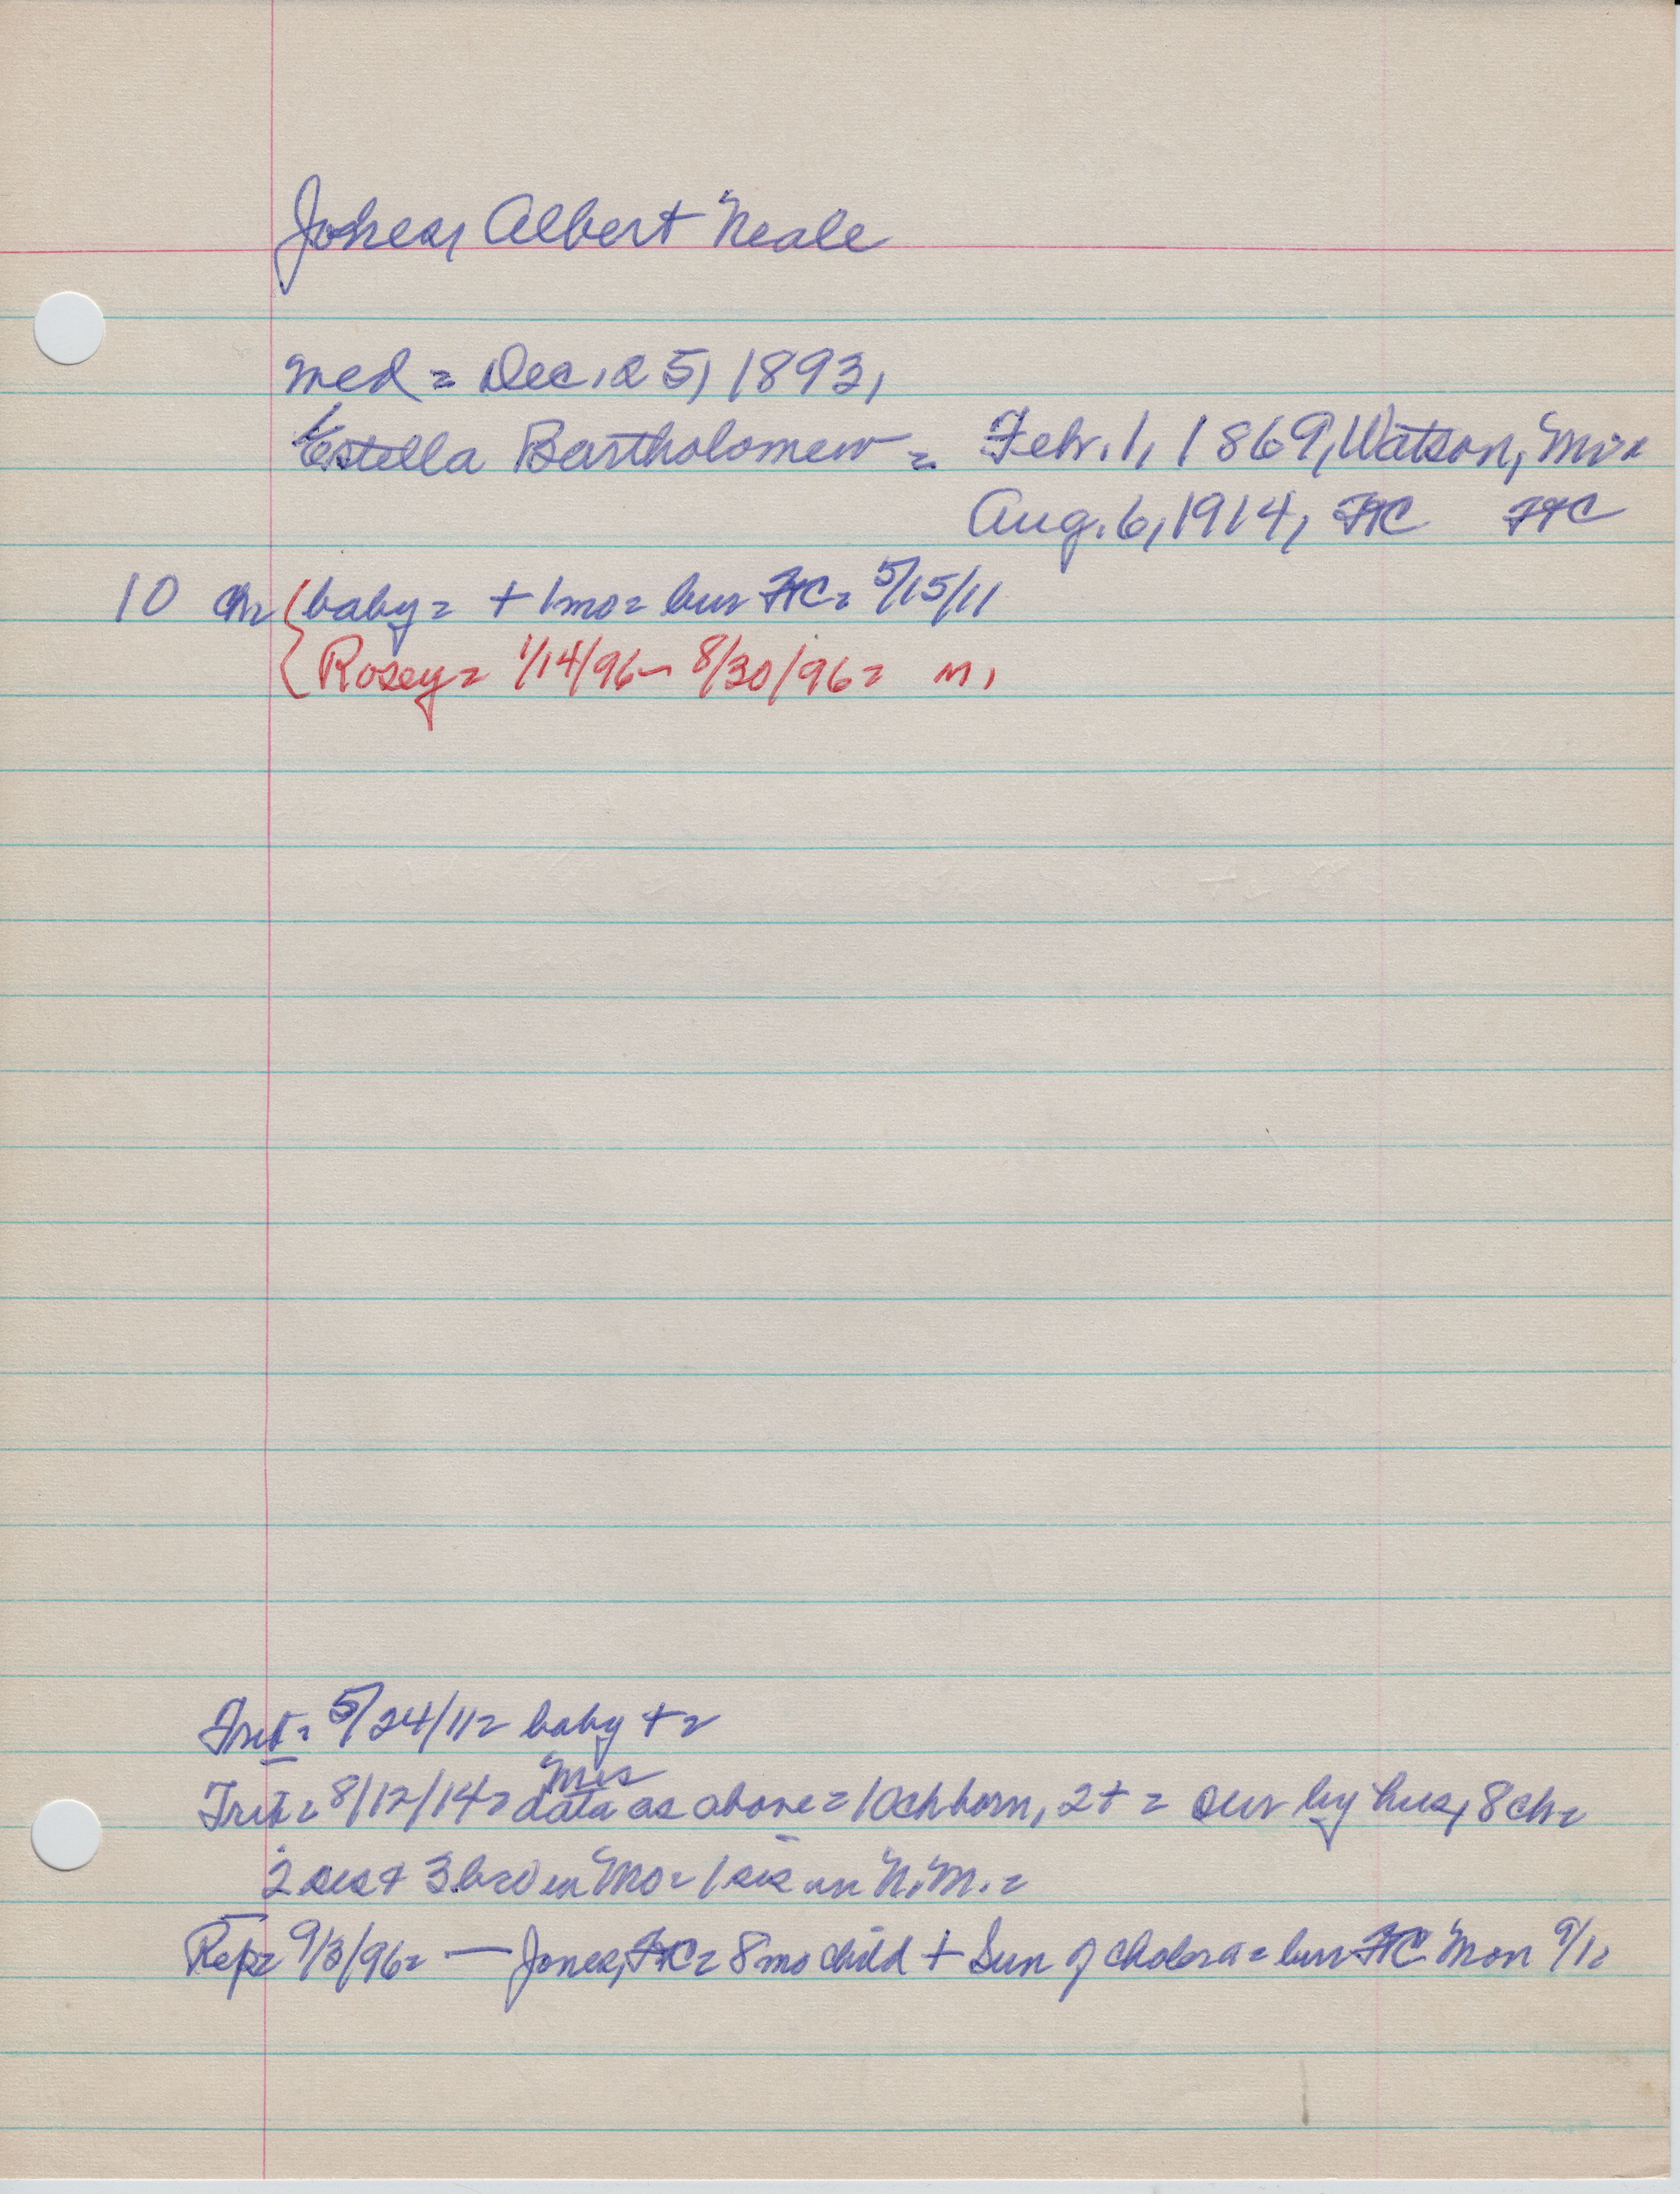 Jones, Albert Neale
med = Dec. 25, 1893,
Estella Bartholomew = Feb. 1, 1869, Watson, Mo =
Aug. 6, 1914, FC FC
10 ch = baby = + 1 mo = bur FC = 5/15/11
Rosey = 1/14/96 - 8/30/96 = M,
5/24/11 = baby + =
Mrs
8/12/14 = data as above = 10 ch born, 2 + = sur by hus, 8 ch =
2 sis + 3 bro in Mo = 1 sis in N.M. =
Rep = 9/3/96 = — Jones, FC = 8 mo child + Sun of cholera = bur FC Mon 9/1 =